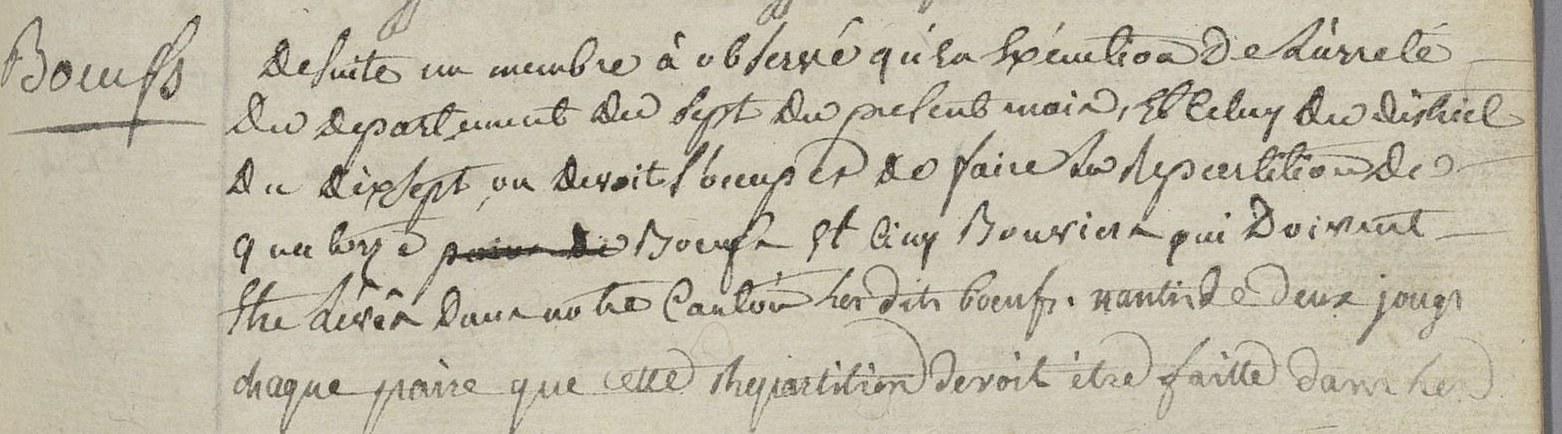 Bœufs
De suite un membre à observé qu'En Exécution De L'arreté
Du departement du sept du present mois, Et Celuy du district
Du dixsept, on devoit s'occuper de faire La Repartition de
quatorze paires de Boeufs Et Cinq Bouviers qui Doivent
Etre Levés Dans notre Canton Les dits bœufs. nantis de deux jougs
chaque paire que cette Repartition devoit être faitte dans Les